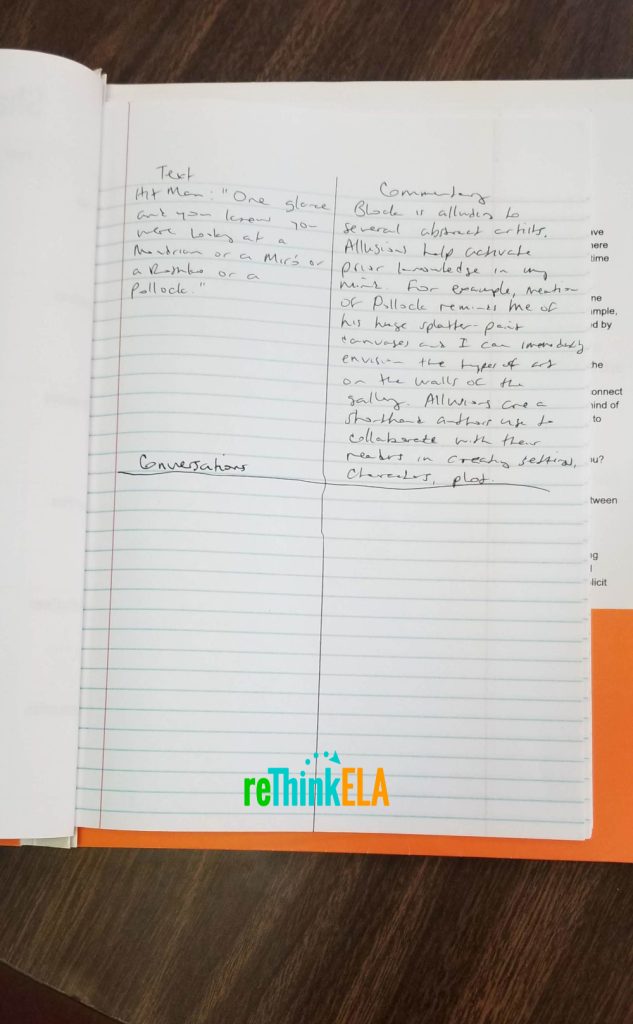 Text
Hit Man: "One glance
and you know you
were looking at a
Mondrian or a Miró or
a Rothko or a
Pollock."
Commentary
Block is alluding to
several abstract artists.
Allusions help activate
prior knowledge in my
mind. For example, mention
of Pollock reminds me of
his huge splatter-paint
canvases and I can immediately
envision the types of art
on the walls of the
gallery. Allusions are a
shorthand authors use to
collaborate with their
readers in creating settings,
characters, plot.
Conversations
ive
here
time
ne
mple,
d by
he
onnect
ind of
to
u?
tween
ng
licit
reThinkELA